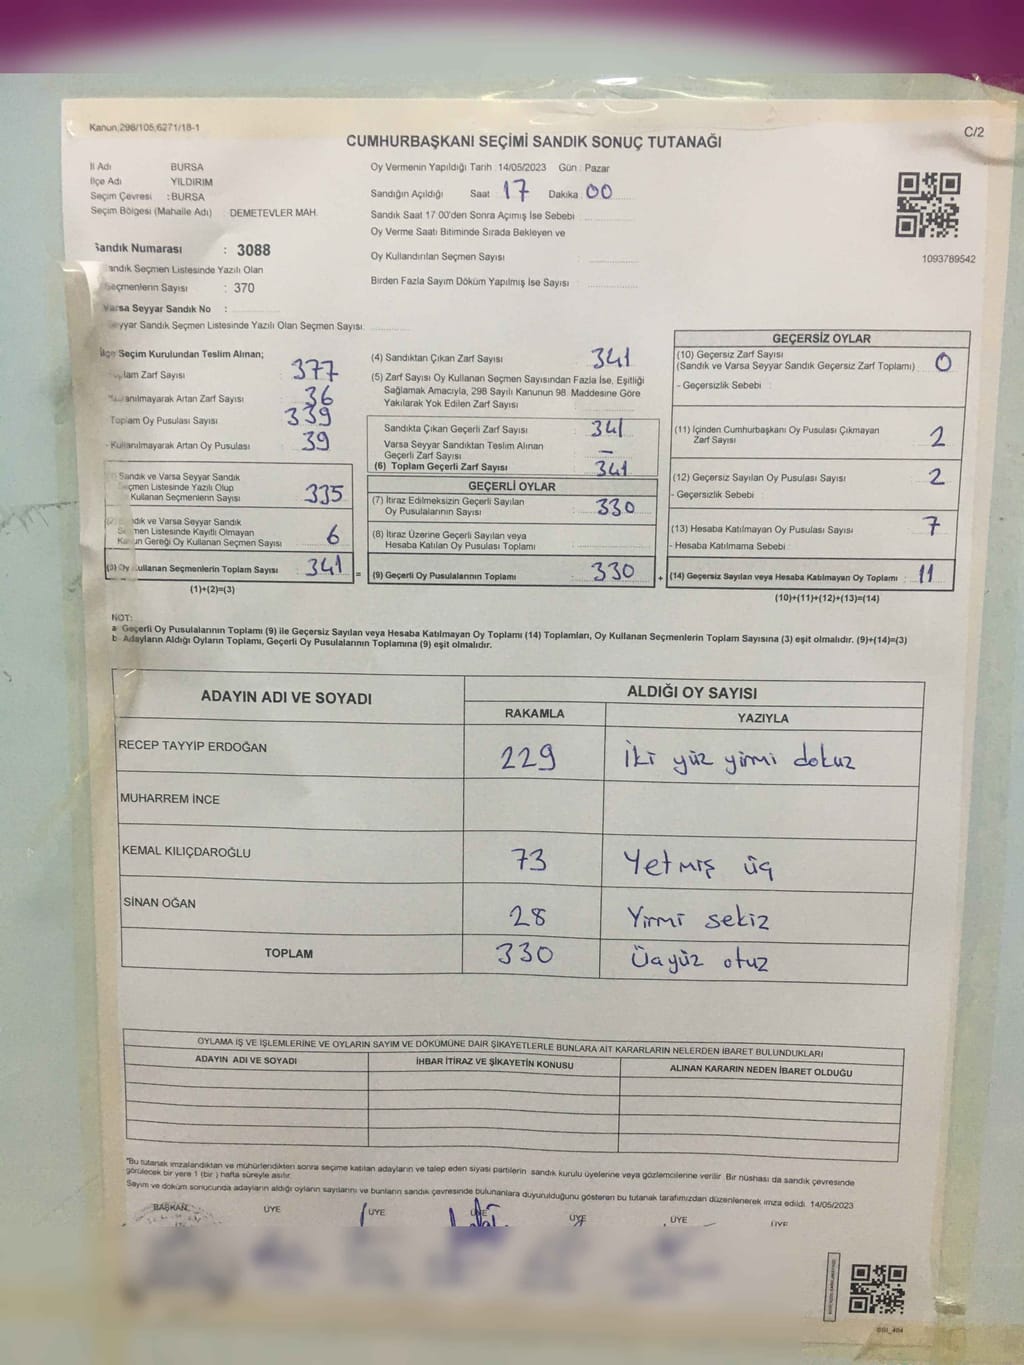 Kanun;298/105,6271/18-1
C/2
CUMHURBAŞKANI SEÇİMİ SANDIK SONUÇ TUTANAĞI
İl Adı BURSA
İlçe Adı YILDIRIM
Seçim Çevresi :BURSA
Seçim Bölgesi (Mahalle Adı) DEMETEVLER MAH.
Sandık Numarası : 3088
Sandık Seçmen Listesinde Yazılı Olan
Seçmenlerin Sayısı : 370
Varsa Seyyar Sandık No :
Seyyar Sandık Seçmen Listesinde Yazılı Olan Seçmen Sayısı:
Oy Vermenin Yapıldığı Tarih 14/05/2023 Gün : Pazar
Sandığın Açıldığı Saat 17 Dakika 00
Sandık Saat 17:00'den Sonra Açımış İse Sebebi
Oy Verme Saati Bitiminde Sırada Bekleyen ve
Oy Kullandırılan Seçmen Sayısı
Birden Fazla Sayım Döküm Yapılmış İse Sayısı
1093789542
İlçe Seçim Kurulundan Teslim Alınan;
Toplam Zarf Sayısı 377
Kullanılmayarak Artan Zarf Sayısı 36
Toplam Oy Pusulası Sayısı 339
- Kullanılmayarak Artan Oy Pusulası 39
Sandık ve Varsa Seyyar Sandık
Seçmen Listesinde Yazılı Olup
Kullanan Seçmenlerin Sayısı 335
(2) Sandık ve Varsa Seyyar Sandık
Seçmen Listesinde Kayıtlı Olmayan
Kanun Gereği Oy Kullanan Seçmen Sayısı 6
(3) Oy Kullanan Seçmenlerin Toplam Sayısı : 341 =
(1)+(2)=(3)
(4) Sandıktan Çıkan Zarf Sayısı 341
(5) Zarf Sayısı Oy Kullanan Seçmen Sayısından Fazla İse, Eşitliği
Sağlamak Amacıyla, 298 Sayılı Kanunun 98. Maddesine Göre
Yakılarak Yok Edilen Zarf Sayısı
Sandıkta Çıkan Geçerli Zarf Sayısı : 341
Varsa Seyyar Sandıktan Teslim Alınan
Geçerli Zarf Sayısı : –
(6) Toplam Geçerli Zarf Sayısı : 341
GEÇERLİ OYLAR
(7) İtiraz Edilmeksizin Geçerli Sayılan
Oy Pusulalarının Sayısı : 330
(8) İtiraz Üzerine Geçerli Sayılan veya
Hesaba Katılan Oy Pusulası Toplamı :
(9) Geçerli Oy Pusulalarının Toplamı : 330 +
GEÇERSİZ OYLAR
(10) Geçersiz Zarf Sayısı
(Sandık ve Varsa Seyyar Sandık Geçersiz Zarf Toplamı) : 0
- Geçersizlik Sebebi :
(11) İçinden Cumhurbaşkanı Oy Pusulası Çıkmayan
Zarf Sayısı 2
(12) Geçersiz Sayılan Oy Pusulası Sayısı : 2
- Geçersizlik Sebebi :
(13) Hesaba Katılmayan Oy Pusulası Sayısı : 7
- Hesaba Katılmama Sebebi :
(14) Geçersiz Sayılan veya Hesaba Katılmayan Oy Toplamı : 11
(10)+(11)+(12)+(13)=(14)
NOT:
a- Geçerli Oy Pusulalarının Toplamı (9) ile Geçersiz Sayılan veya Hesaba Katılmayan Oy Toplamı (14) Toplamları, Oy Kullanan Seçmenlerin Toplam Sayısına (3) eşit olmalıdır. (9)+(14)=(3)
b- Adayların Aldığı Oyların Toplamı, Geçerli Oy Pusulalarının Toplamına (9) eşit olmalıdır.
ADAYIN ADI VE SOYADI ALDIĞI OY SAYISI
RAKAMLA YAZIYLA
RECEP TAYYİP ERDOĞAN 229 İki yüz yirmi dokuz
MUHARREM İNCE
KEMAL KILIÇDAROĞLU 73 Yetmiş üç
SİNAN OĞAN 28 Yirmi sekiz
TOPLAM 330 Üçyüz otuz
OYLAMA İŞ VE İŞLEMLERİNE VE OYLARIN SAYIM VE DÖKÜMÜNE DAİR ŞİKAYETLERLE BUNLARA AİT KARARLARIN NELERDEN İBARET BULUNDUKLARI
ADAYIN ADI VE SOYADI İHBAR İTİRAZ VE ŞİKAYETİN KONUSU ALINAN KARARIN NEDEN İBARET OLDUĞU
*Bu tutanak imzalandıktan ve mühürlendikten sonra seçime katılan adayların ve talep eden siyasi partilerin sandık kurulu üyelerine veya gözlemcilerine verilir. Bir nüshası da sandık çevresinde
görülecek bir yere 1 (bir ) hafta süreyle asılır.
Sayım ve döküm sonucunda adayların aldığı oyların sayılarını ve bunların sandık çevresinde bulunanlara duyurulduğunu gösteren bu tutanak tarafımızdan düzenlenerek imza edildi. 14/05/2023
BAŞKAN ÜYE ÜYE ÜYE ÜYE ÜYE ÜYE